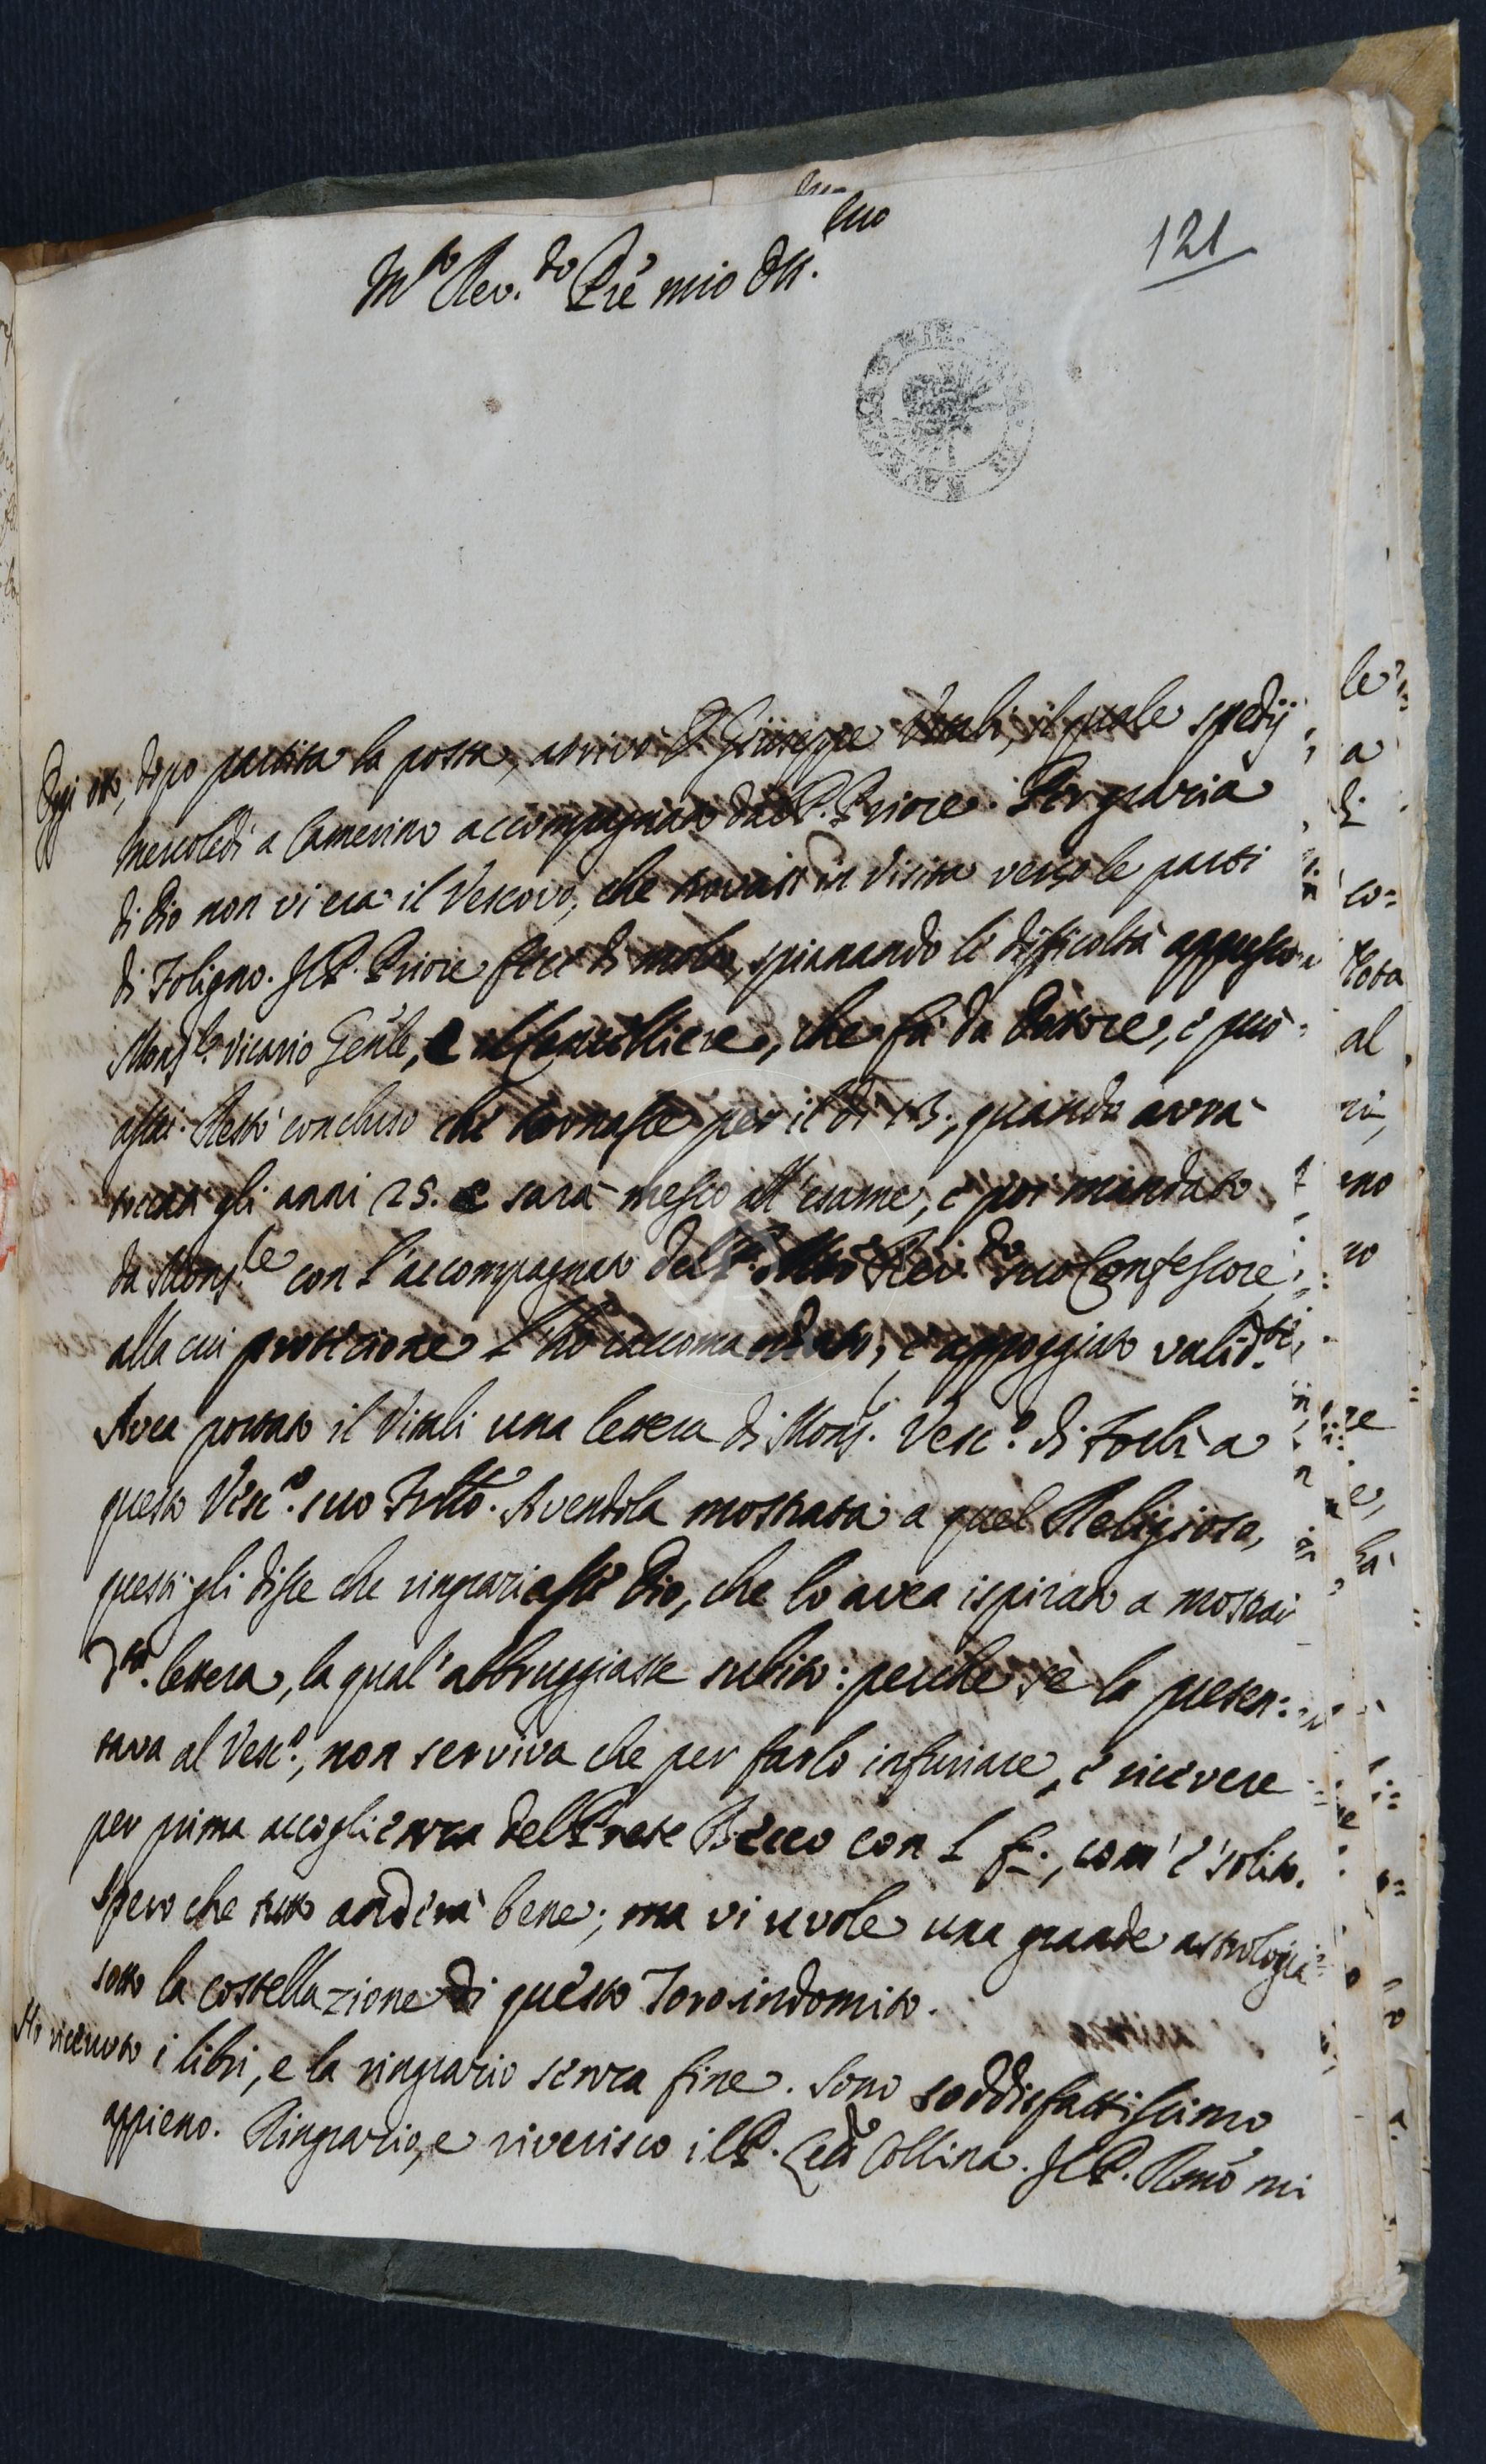 121
M.to Rev.do P̃re mio Oss.mo
Oggi otto, dopo partita la posta, arrivò D. Giuseppe Vitali, il quale spedij
Mercoledi a Camerino accompagnato dal P. Priore. Per grazia
di Dio non vi era il Vescovo, che trovasi in Visita verso le parti
di Foligno. Il P. Priore fece di molto, spianando le difficoltà appresso
Mons.re Vicario Gen̄le, e il Cancelliere, che fà da Dottore, e può
assai. Restò concluso che tornasse per il dì 13., quando avrà
toccati gli anni 25. e sarà messo all'esame, e poi mandato
da Mons.re con l'accompagnato del P. Molto Rev.do suo Confessore,
alla cui protezione l'hò raccomandato, e appoggiato valid.te.
Avea portato il Vitali una lettera di Mons. Vesc.o di Forlì a
questo Vesc.o suo Frãtto. Avendola mostrata a quel Religioso,
questi gli disse che ringraziasse Dio, che lo avea ispirato a mostrar
d.ta lettera, la qual'abbruggiasse subito: perche se la presen:
tava al Vesc.o, non serviva che per farlo infuriare, e ricevere
per prima accoglienza del Prete Becco con l f., com'è solito.
Spero che tutto anderà bene; ma vi vuole una grande astrologia
sotto la costellazione di questo Toro indomito.
Hò ricevuto i libri, e la ringrazio senza fine. Sono soddisfattissimo
appieno. Ringrazio, e riverisco il P. Collina. Il P. Rmõ mi